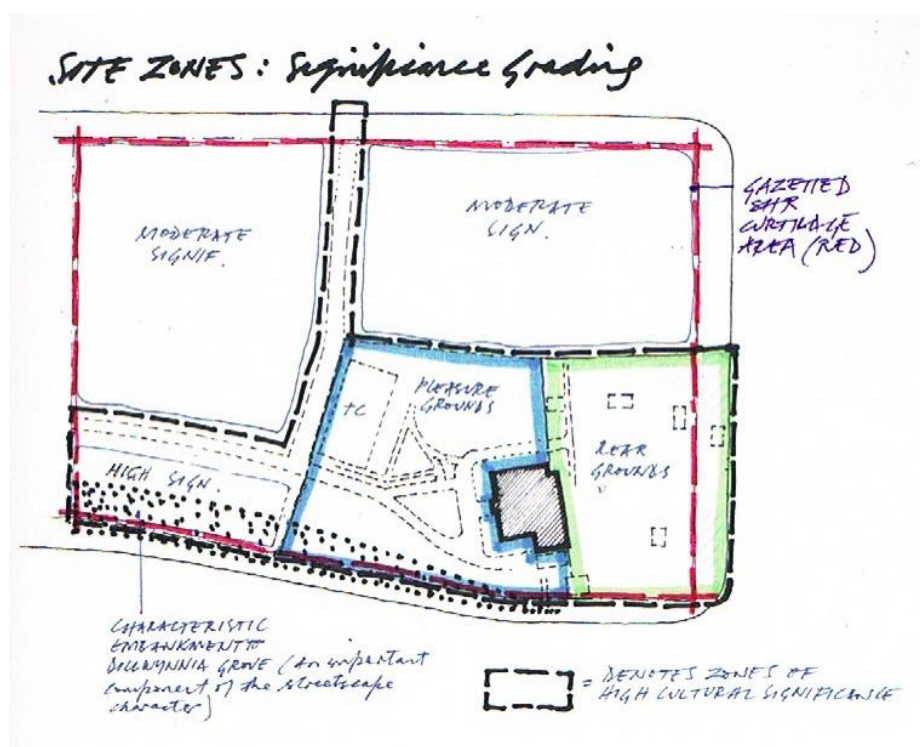 SITE ZONES: Significance Grading
MODERATE
SIGNIF.
MODERATE
SIGN.
GAZETTED
SHR
CURTILAGE
AREA (RED)
PLEASURE
GROUNDS
TC
REAR
GROUNDS
HIGH SIGN.
CHARACTERISTIC
EMBANKMENT TO
DILLWYNNIA GROVE (an important
component of the streetscape
character)
= DENOTES ZONES OF
HIGH CULTURAL SIGNIFICANCE